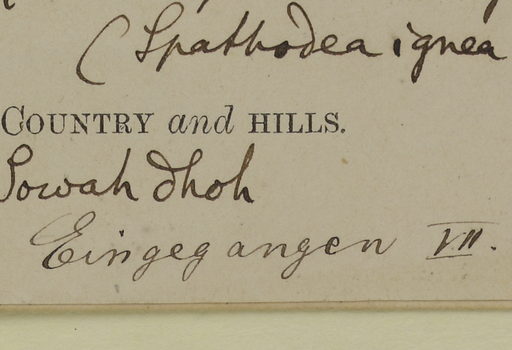 (Spathodea ignea
COUNTRY and HILLS.
Sowah dhoh
Eingegangen VII.